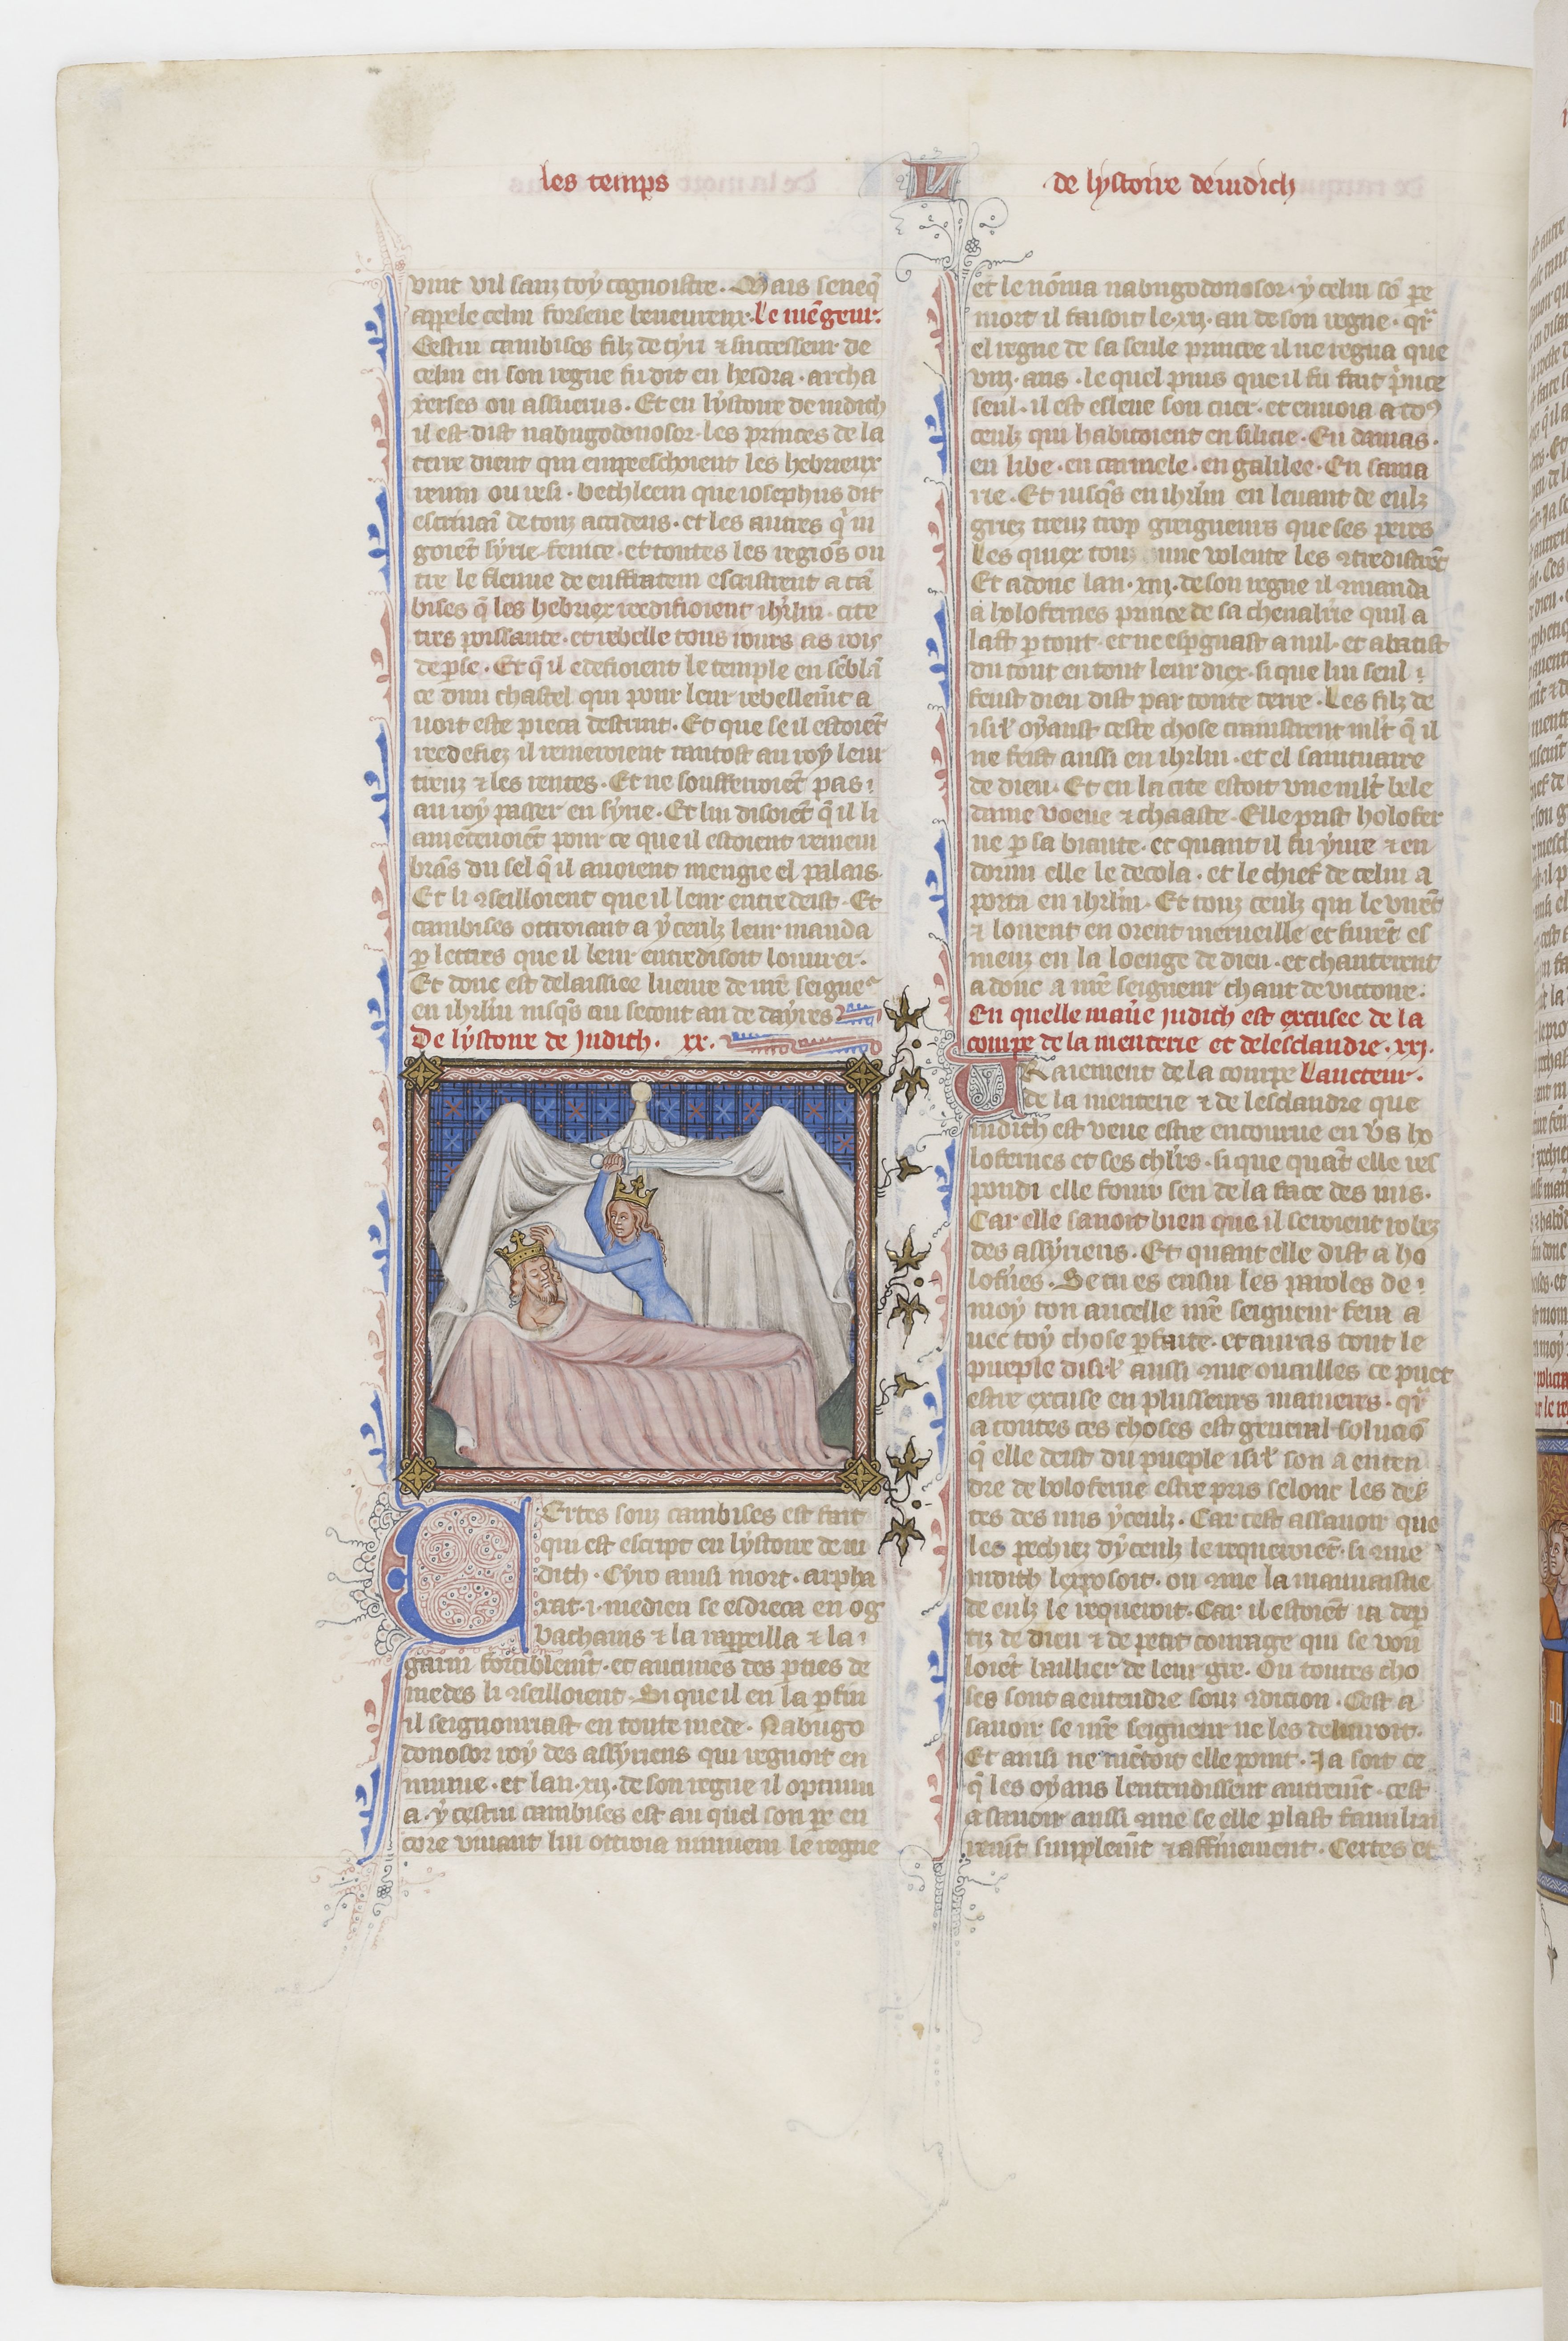 les temps
V
de lystoire de iudich
vint vil sanz toy cognoistre. Mais seneq̄
appele celui forsene beneureux. Le mēgeur.
Cestui cambises filz de cyri ⁊ successeur de
celui en son regne fu dit en hesdra. archa
xerses ou assuerus. Et en lystoire de iudich
il est dist nabugodonosor. les princes de la
terre dient qui empeschoient les hebrieux
reum ou resi. bethleem que iosephus dit
de touz accidens. et les autres q̇ iu
goiēt syrie. fenice. et toutes les regiōs ou
tre le fleuue de eufratem escristrent a cā
bises q̄ les hebriex redifioient ihrl̄m. cite
tres poissante. et rebelle tous iours as rois
de p̄se. Et q̄ il edefioient le temple en sēblā
ce dun chastel qui pour leur rebellem̄t a
uoit este pieca destruit. Et que se il estoiēt
reedefiez il remeroient tantost au roy leur
treuz ⁊ les rentes. Et ne soufferroiēt pas
au roy passer en syrie. Et lui disoiēt q̄ il li
pour ce que il estoient remem
brās du sel q̄ il auoient mengie el palais.
Et li ꝯseilloient que il leur entredeist. Et
cambises ottroiant a yceulz leur manda
p̱ lettres que il leur entredisoit louurer.
Et donc est delaissiee lueure de nr̄e seigneᵣ
en ihrl̄m iusq̄s au secont an de dayres
De lystoire de Judith. xx.
Certes souz cambises est fait
qui est escript en lystoire de iu
dith. Cyro ainsi mort. arpha
xat .i. medien se esdreca en eg
bathanis ⁊ la rappeilla ⁊ la
garni forciblem̄t. et aucunes des p̱ties de
medes li ꝯseilloient. Si que il en la p̱fin
il seignouriast en toute mede. Nabugo
donosor roy des assyriens qui regnoit en
niniue. et lan .xij. de son regne il optinu
a. y cestui cambises est au quel son pe̱ en
core viuant lui ottroia niniuem le regne
et le nōma nabugodonosor. y celui sō pe̱
mort il faisoit le .xij. an de son regne. qr̄
el regne de sa seule princee il ne regna que
viij. ans. le quel puis que il fu fait p̄nce
seul. il est esleue son cuer. et enuoia a toꝰ
ceulz qui habitoient en silicie. En damas.
en libe. en carmele. en galilee. En sama
rie. Et iusq̄s en ihrl̄m en leuant de eulz
griez treuz trop greigneurs que ses peres
Les quiex touz dune volente les ꝯtredistrēt
Et adonc lan .xiij. de son regne il manda
a holofernes prince de sa cheualrie quil a
last p̱ tout. et nespgnast a nul. et abatist
du tout en tout leur diex. si que lui seul
feust dieu dist par toute terre. Les filz de
isrl̄ oyanst ceste chose cremistrent ml̄t q̄ il
ne feist aussi en ihrl̄m. et el saintuaire
de dieu. Et en la cite estoit vne ml̄t bele
dame veoue ⁊ chaaste. Elle prist holofer
ne p̱ sa biaute. et quant il fu yure ⁊ en
dormi elle le decola. et le chief de celui a
porta en ihrl̄m. Et touz ceulz qui le virēt
⁊ loirent en orent merueille et furēt es
meuz en la loenge de dieu. et chanterent
adonc a nr̄e seigneur chant de victoire.
En quelle manīe judith est excusee de la
coupe de la menterie et delesclandre. xxj.
Vraiement de la coupe Laucteur.
de la menterie ⁊ de lesclandre que
iudith est veue estre encourue en v̄s ho
lofernes et ses chl̄rs. si que quāt elle res
pondi elle foui sen de la face des iuis.
Car elle sauoit bien que il seroient robez
des assyriens. Et quant elle dist a ho
lofn̄es. Se tu es ensui les paroles de
moy ton ancelle nr̄e seigneur fera a
uec toy chose p̱faite. et auras tout le
pueple disrl̄ aussi ꝯme ouailles ce puet
estre excuse en plusseurs manieres. qr̄
a toutes ces choses est general solucio̅
q̄ elle deist du pueple isrl̄ son a enten
dre de holoferne estre pris selonc les des
tes des iuis yceulz. Car cest assauoir que
les pechiez dyceulz le requeroiēt. si ꝯme
iudith lexposoit. ou ꝯme la mauuaistie
de eulz le requeroit. Car il estoiēt ia dep̱
tiz de dieu ⁊ de petit courage qui se vou
loiēt baillier de leur gre. Ou toutes cho
ses sont a entendre souz ꝯdicion. Cest a
sauoir se nr̄e seigneur ne les deliuroit.
Et ainsi ne mētoit elle point. Ja soit ce
q̄ les oyans lentendissent autrem̄t. cest
asauoir aussi ꝯme se elle p̱last familia
rem̄t simplem̄t ⁊ affirment. Certes et